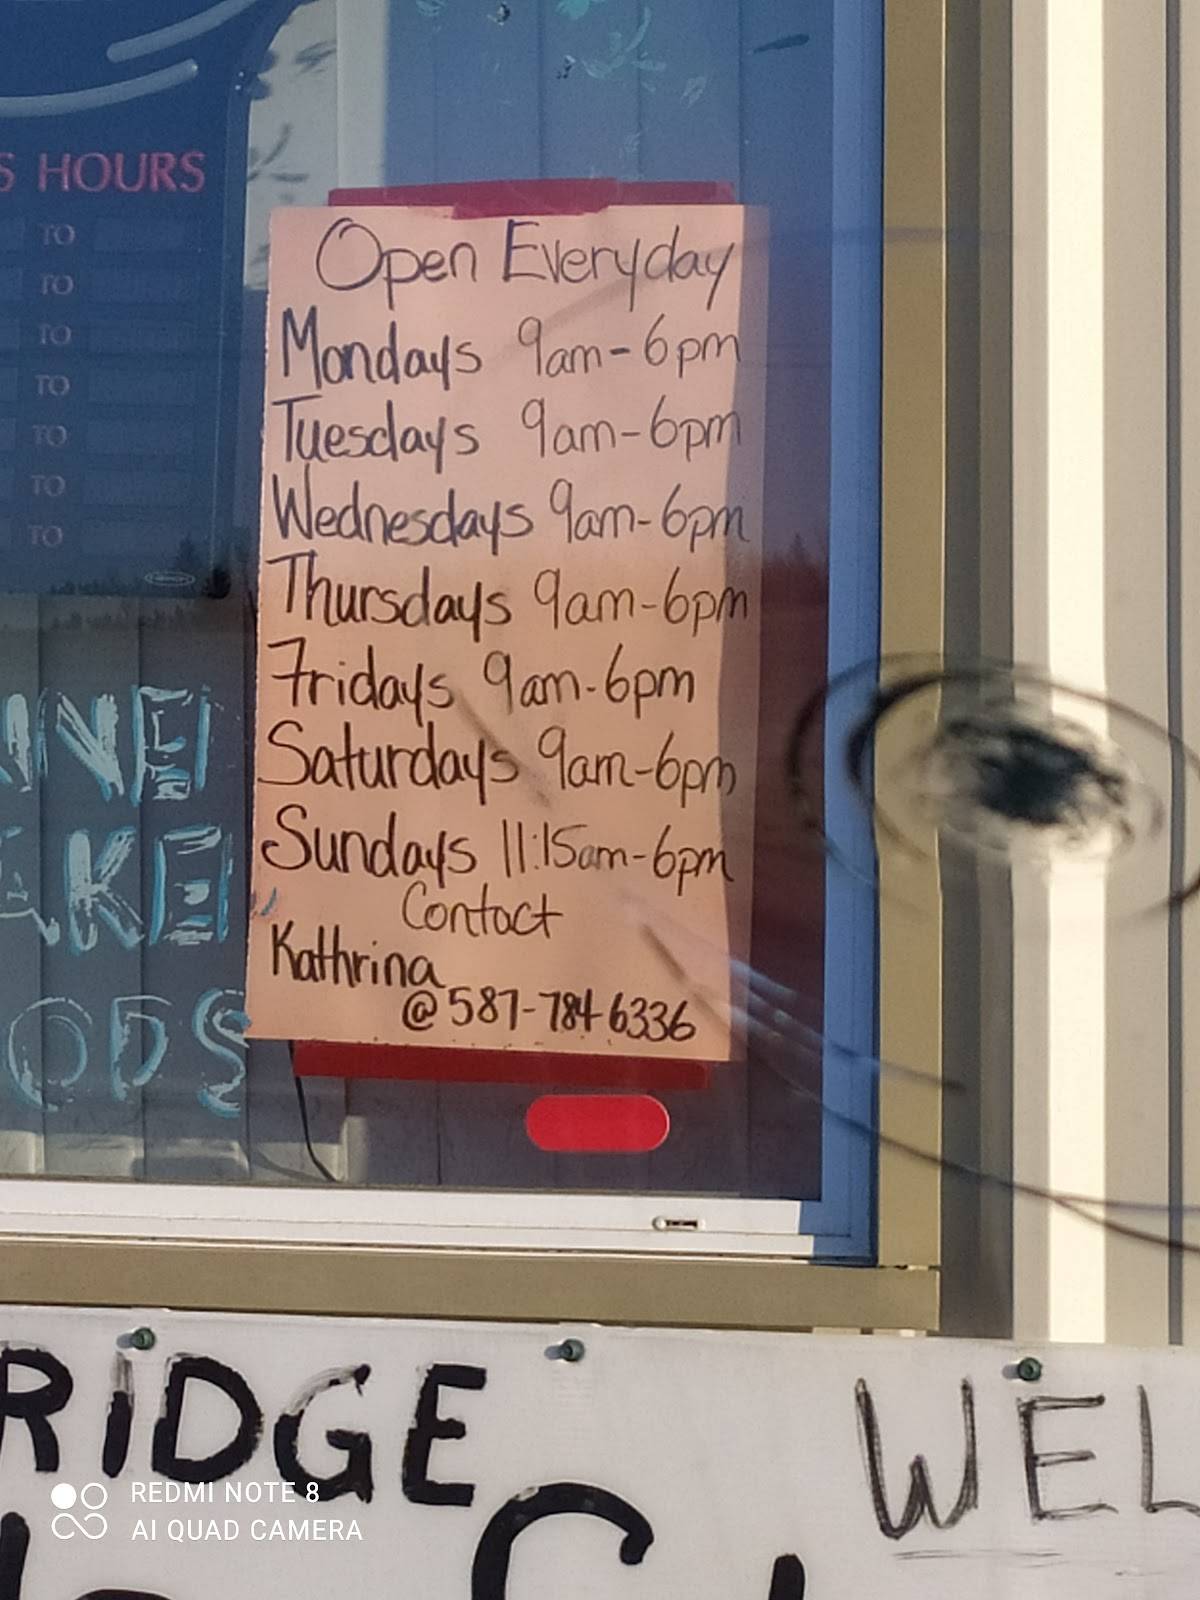 S HOURS
TO
TO
TO
TO
TO
TO
TO
Open Everyday
Mondays 9am-6pm
Tuesdays 9am-6pm
Wednesdays 9am-6pm
Thursdays 9am-6pm
Fridays 9am-6pm
Saturdays 9am-6pm
Sundays 11:15am-6pm
Contact
Kathrina
@587-784 6336
AKE
ODS
RIDGE
WEL
REDMI NOTE 8
AI QUAD CAMERA